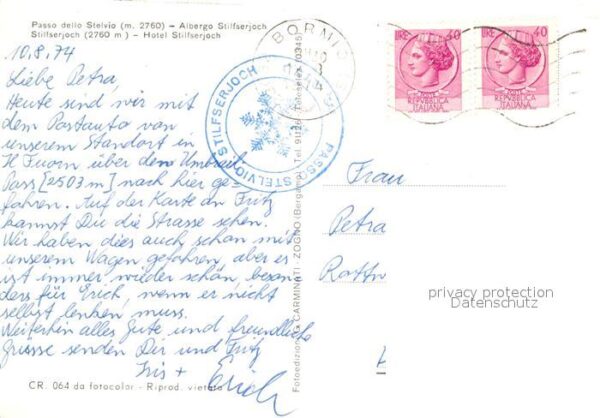 Passo dello Stelvio (m. 2760) - Albergo Stilfserjoch
Stilfserjoch (2760 m) - Hotel Stilfserjoch
10.8.74
Liebe Petra,
Heute sind wir mit
dem Postauto von
unserem Standort in
Il Fuorn über den Umbrail
Pass [2503 m] nach hier ge-
fahren. Auf der Karte an Fritz
kannst Du die Strasse sehen.
Wir haben dies auch schon mit
unserem Wagen gefahren, aber es
ist immer wieder schön, beson
ders für Erich, wenn er nicht
selbst lenken muss.
Weiterhin alles Gute und freundliche
Grüsse senden Dir und Fritz
Iris + Erich
CR. 064 da fotocolor - Riprod. vietata
PASSO STELVIO STILFSERJOCH
Fotoedizioni G. CARMINATI ZOGNO (Bergamo) Tel. 91126
BORMIO
LIRE 40
POSTE
REPVBBLICA
ITALIANA
LIRE 40
POSTE
REPVBBLICA
ITALIANA
Frau
Petra
privacy protection
Datenschutz